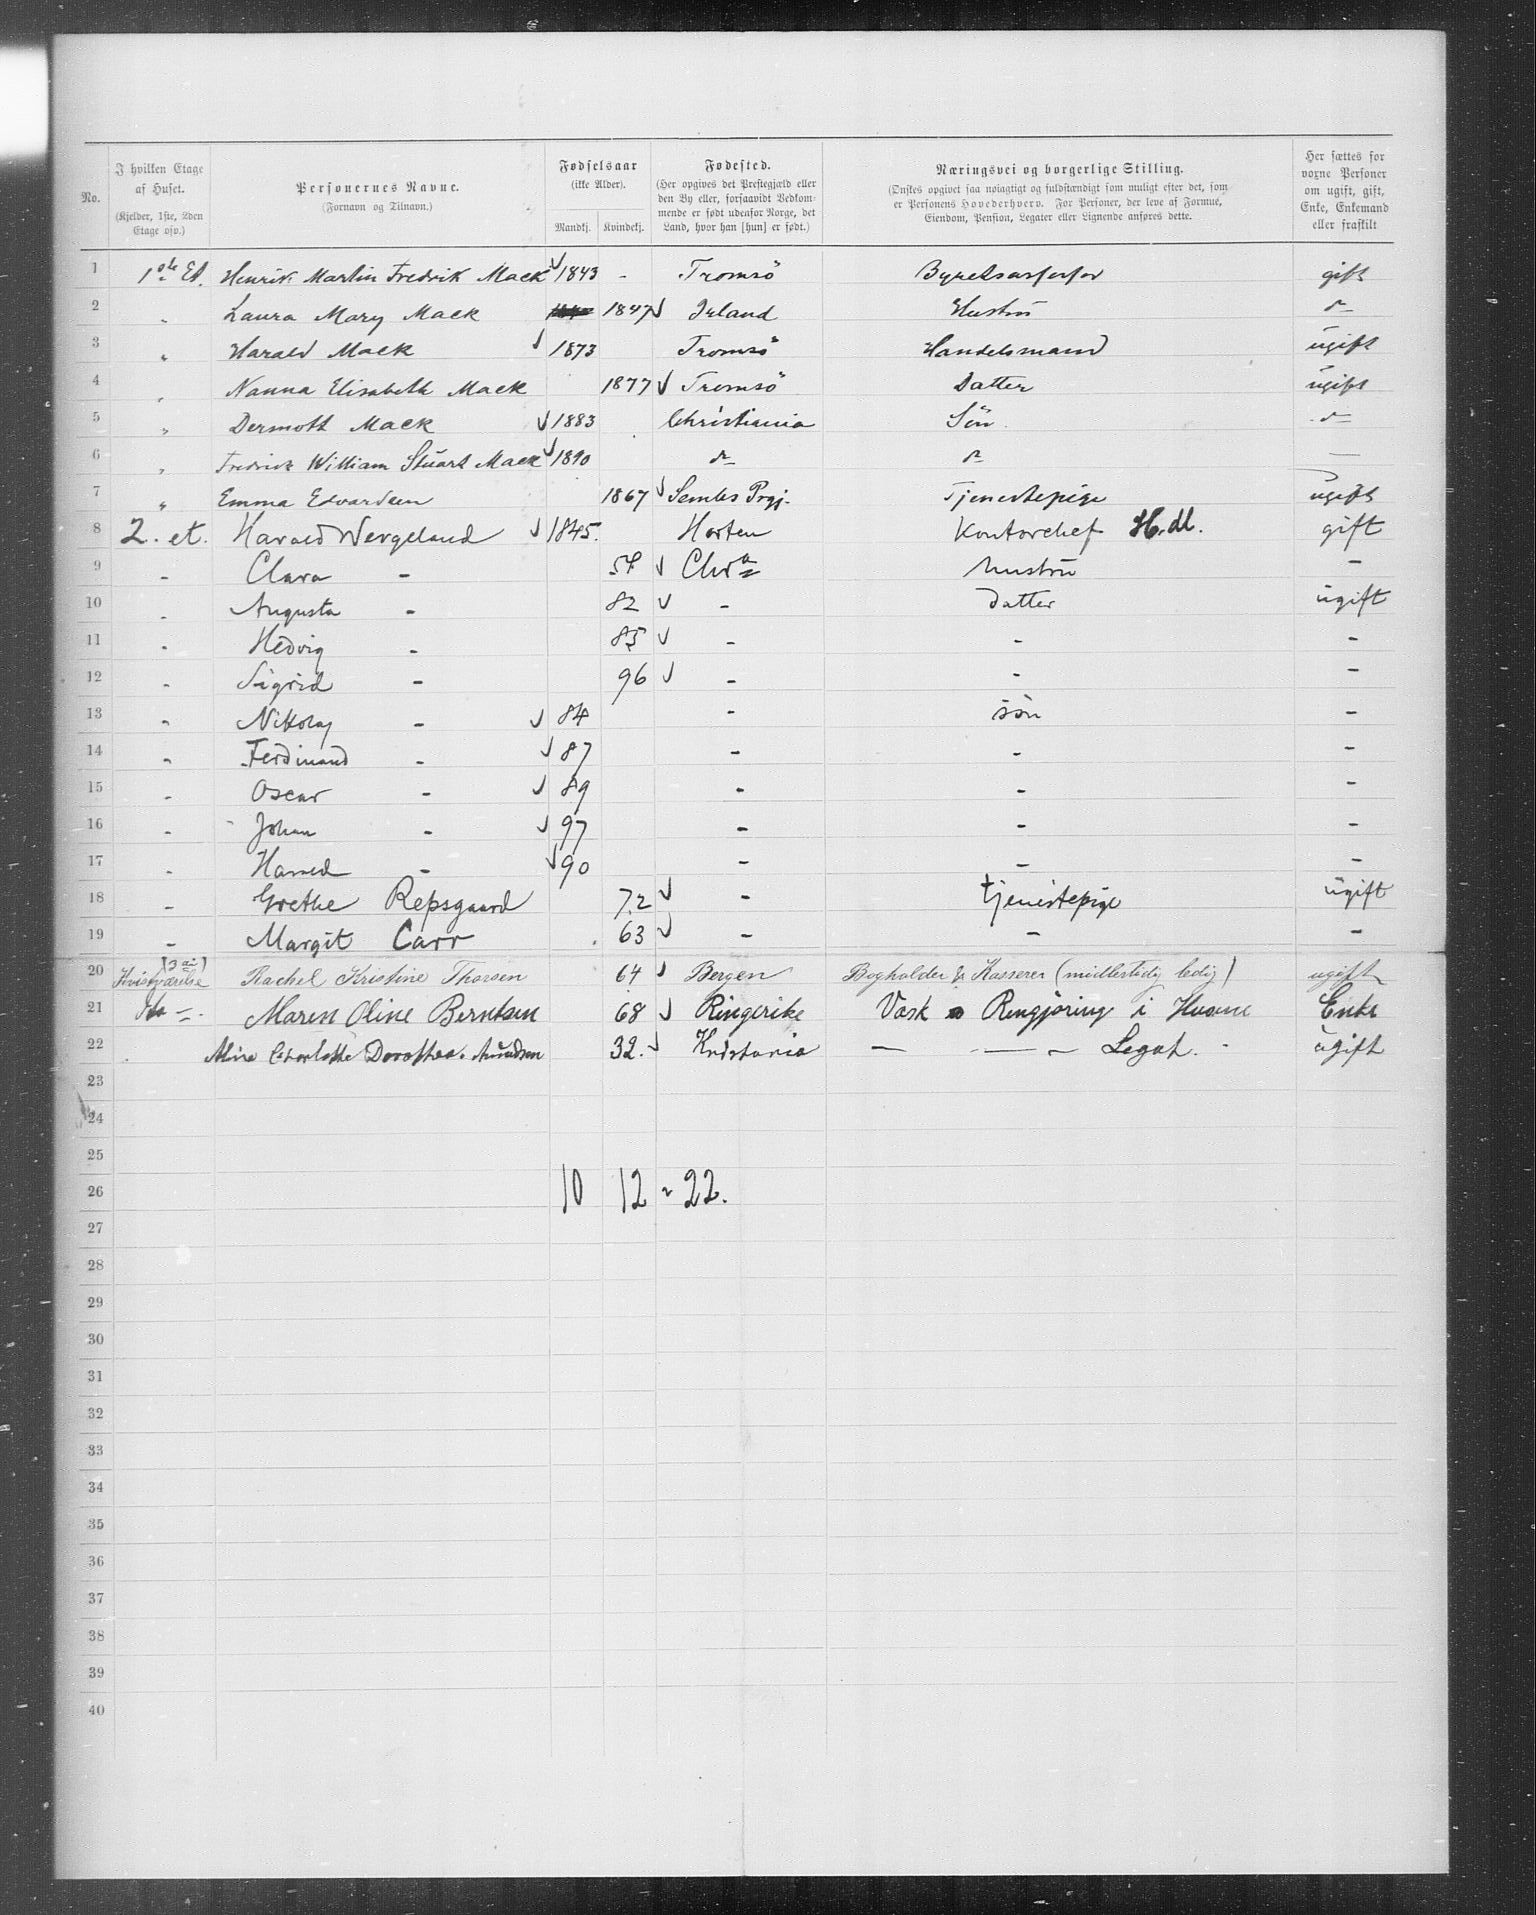 No.
I hvilken Etage af Huset.
(Kjelder, 1ste, 2den Etage osv.)
Personernes Navne.
(Fornavn og Tilnavn.)
Fødselsaar
(ikke Alder).
Mandkj. Kvindekj.
Fødested.
(Her opgives det Prestegjæld eller den By eller, forsaavidt Vedkommende er født udenfor Norge, det Land, hvor han [hun] er født.)
Næringsvei og borgerlige Stilling.
(Ønskes opgivet saa nøiagtigt og fuldstændigt som muligt efter det, som er Personens Hovederhverv. For Personer, der leve af Formue, Eiendom, Pension, Legater eller Lignende anføres dette.
Her sættes for voxne Personer om ugift, gift, Enke, Enkemand eller fraskilt
1 1ste Et. Henrik Martin Fredrik Mack 1843 - Tromsö Byretsassessor gift
2 " Laura Mary Mack 1847 Irland Hustru do
3 " Harald Mack 1873 Tromsö Handelsmand ugift
4 " Nanna Elisabeth Mack 1877 Tromsö Datter ugift
5 " Dermott Mack 1883 Christiania Sön do
6 " Fredrik William Stuart Mack 1890 do do —
7 " Emma Edvardsen 1867 Sembs Prgj. Tjenestepige ugift
8 2. et. Harald Wergeland 1845. Horten Kontorchef H.dl. gift
9 - Clara - 54 Chra Hustru -
10 - Augusta - 82 - Datter ugift
11 - Hedvig - 85 - - -
12 - Sigrid - 96 - - -
13 - Nikolaj - 84 - sön -
14 - Ferdinand - 87 - - -
15 - Oscar - 89 - - -
16 - Johan - 97 - - -
17 - Harald - 90 - - -
18 - Grethe Repsgaard 72 - tjenestepige ugift
19 - Margit Carr 63 - - -
20 Kvistværelse Rachel Kristine Thorsen 64 Bergen Bogholder & Kasserer (midlertidig ledig) ugift
21 Maren Oline Berntsen 68 Ringerike Vask Rengjøring i Husene Enke
22 Aline Charlotte Dorothea Amundsen 32. Kristania — — — Legat. ugift
23
24
25
26 10 12 = 22.
27
28
29
30
31
32
33
34
35
36
37
38
39
40